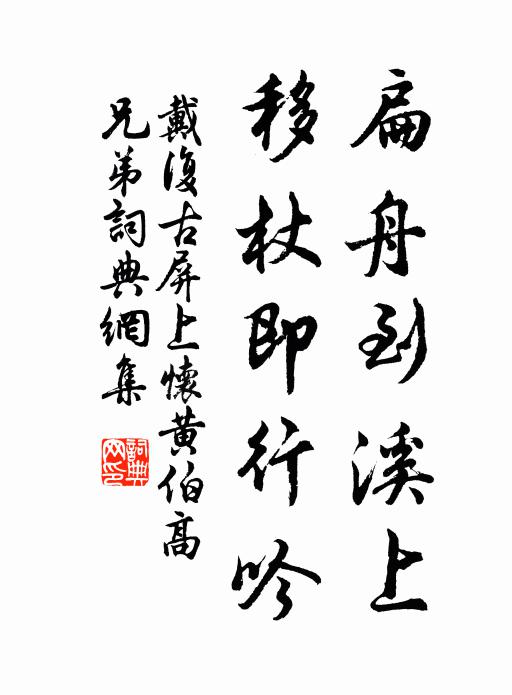 扁舟到溪上
移杖即行吟
戴復古屏上懷黃伯高
兄弟詞典網集
詞典
网印